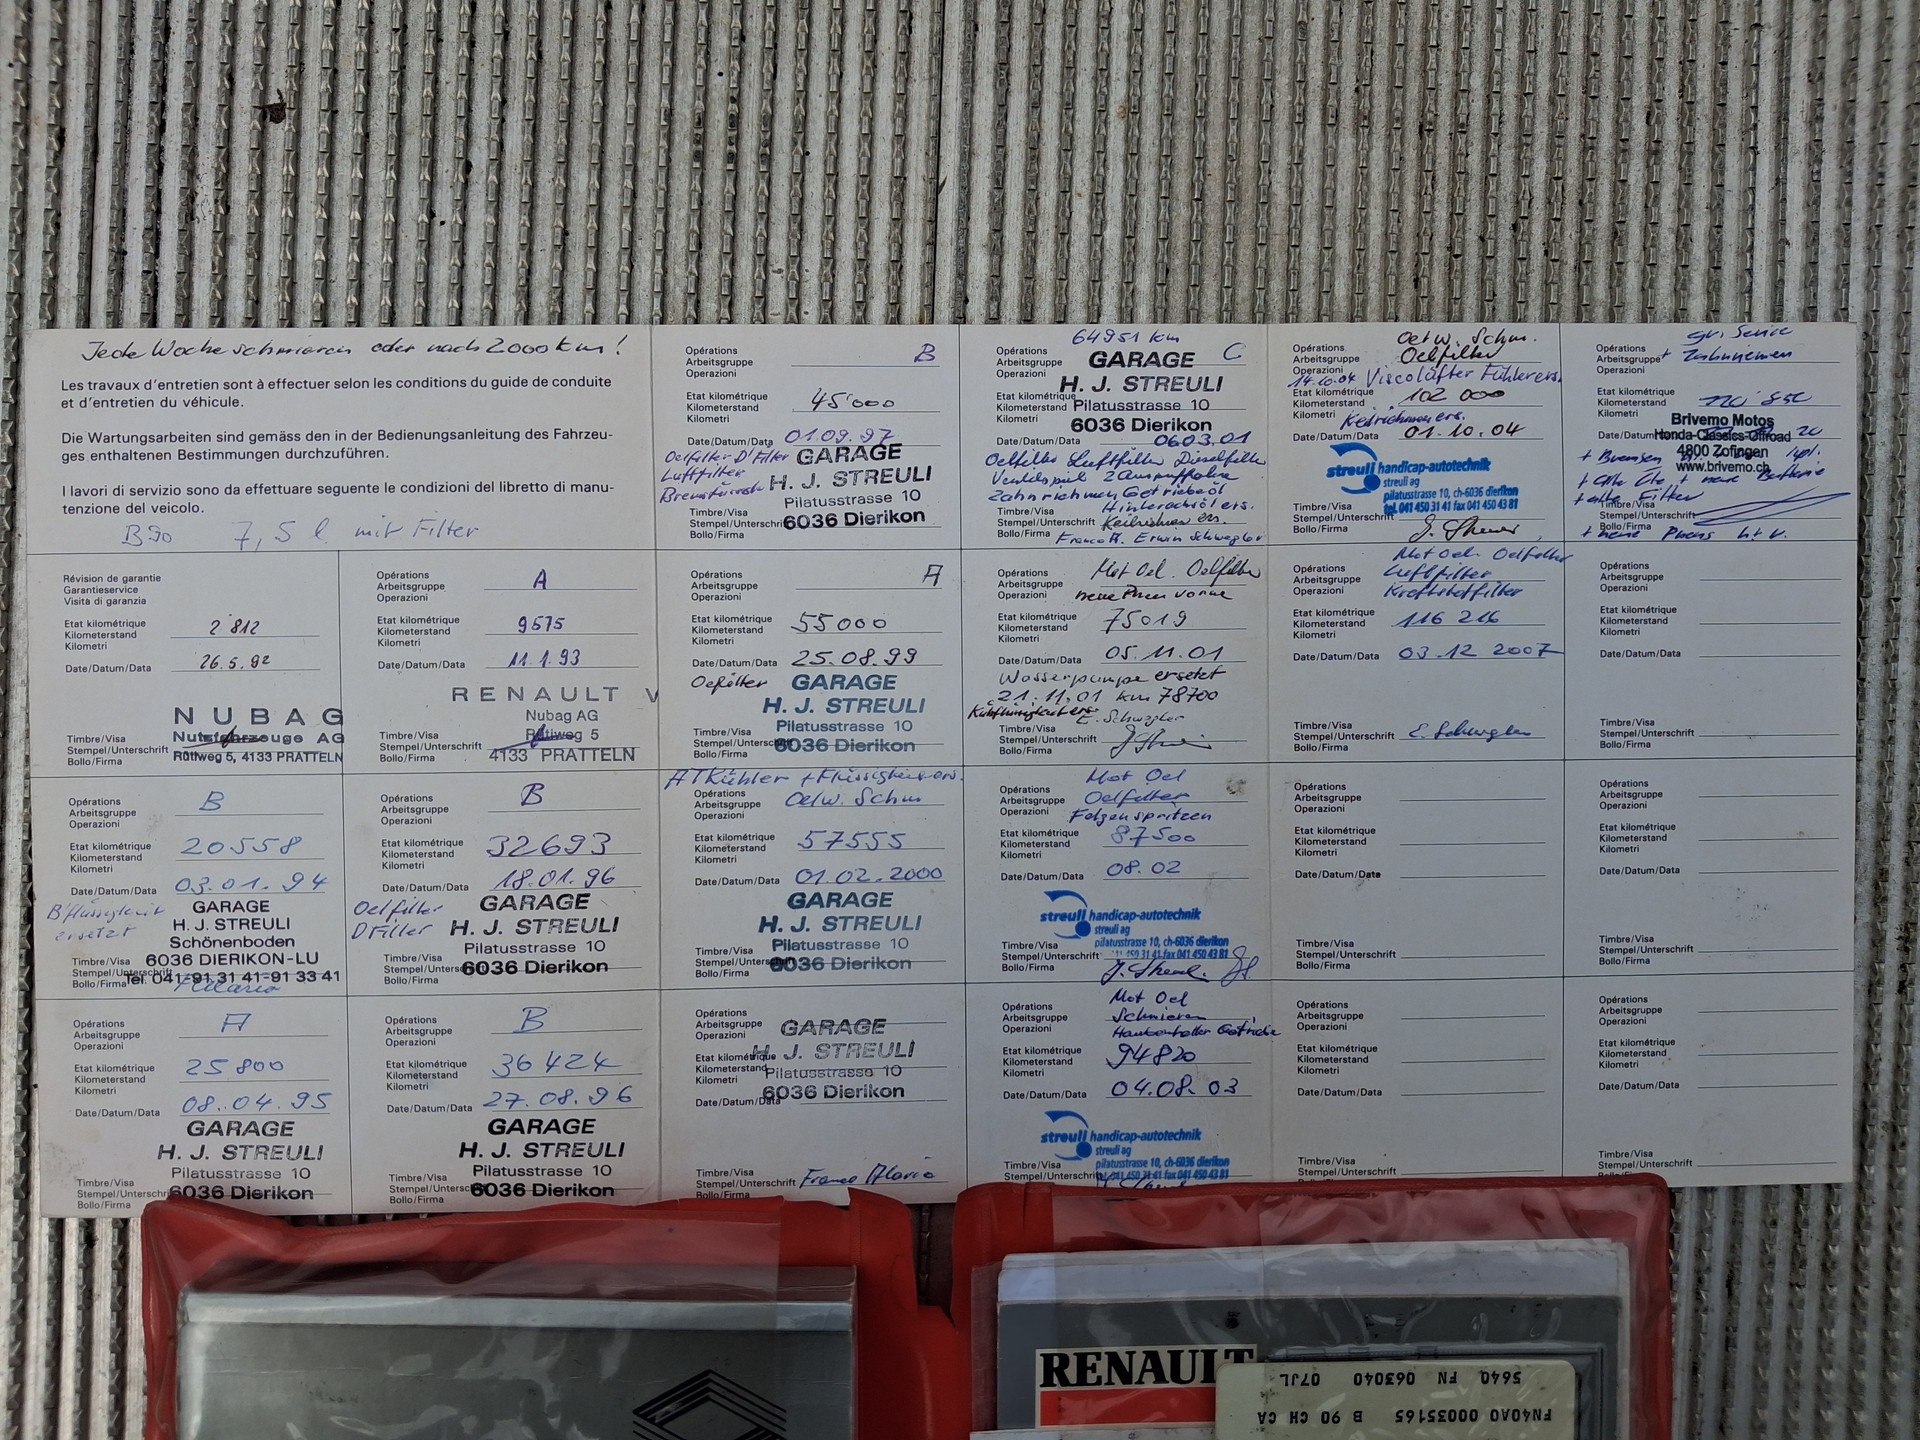 Jede Woche schmieren oder nach 2000 km!
Les travaux d'entretien sont à effectuer selon les conditions du guide de conduite
et d'entretien du véhicule.
Die Wartungsarbeiten sind gemäss den in der Bedienungsanleitung des Fahrzeu-
ges enthaltenen Bestimmungen durchzuführen.
I lavori di servizio sono da effettuare seguente le condizioni del libretto di manu-
tenzione del veicolo.
B90 7,5 l mit Filter
Opérations
Arbeitsgruppe
Operazioni
B
Etat kilométrique
Kilometerstand
Kilometri
45'000
Date/Datum/Data 01.09.97
Oelfilter D'Filter
Luftfilter
GARAGE
H. J. STREULI
Pilatusstrasse 10
6036 Dierikon
Timbre/Visa
Stempel/Unterschrift
Bollo/Firma
64951 km
Opérations
Arbeitsgruppe
Operazioni
C
GARAGE
H. J. STREULI
Pilatusstrasse 10
6036 Dierikon
Etat kilométrique
Kilometerstand
Kilometri
Date/Datum/Data 06.03.01
Oelfilter Luftfilter Dieselfilter
Ventilspiel 2 Auspuffrohre
Zahnriehmen Getriebeöl
Hinterachsöl ers.
Keilriehmen ers.
Timbre/Visa
Stempel/Unterschrift
Bollo/Firma
Franco A. Erwin Schwegler
Oelw. Schm.
Opérations
Arbeitsgruppe
Operazioni
Oelfilter
14.10.04 Viscolüfter Fühler ers.
Etat kilométrique
Kilometerstand
Kilometri
102 000
Keilriehmen ers.
Date/Datum/Data 01.10.04
streuli handicap-autotechnik
streuli ag
pilatusstrasse 10, ch-6036 dierikon
tel. 041 450 31 41 fax 041 450 43 81
Timbre/Visa
Stempel/Unterschrift
Bollo/Firma
gr. Service
Opérations
Arbeitsgruppe
Operazioni
+ Zahnriemen
Etat kilométrique
Kilometerstand
Kilometri
120 850
Date/Datum/Data
Brivemo Motos
Honda-Classics-Offroad
4800 Zofingen
www.brivemo.ch
+ Bremsen
+ Alle Öle + neue Batterie
+ alle Filter
Timbre/Visa
Stempel/Unterschrift
Bollo/Firma
+ neue Pneus h+v.
Révision de garantie
Garantieservice
Visita di garanzia
Etat kilométrique
Kilometerstand
Kilometri
2 812
Date/Datum/Data 26.5.92
NUBAG
Nutzfahrzeuge AG
Rütiweg 5, 4133 PRATTELN
Timbre/Visa
Stempel/Unterschrift
Bollo/Firma
Opérations
Arbeitsgruppe
Operazioni
A
Etat kilométrique
Kilometerstand
Kilometri
9575
Date/Datum/Data 11.1.93
RENAULT V
Nubag AG
Rütiweg 5
4133 PRATTELN
Timbre/Visa
Stempel/Unterschrift
Bollo/Firma
Opérations
Arbeitsgruppe
Operazioni
A
Etat kilométrique
Kilometerstand
Kilometri
55000
Date/Datum/Data 25.08.99
Oelfilter
GARAGE
H. J. STREULI
Pilatusstrasse 10
6036 Dierikon
Timbre/Visa
Stempel/Unterschrift
Bollo/Firma
Opérations
Arbeitsgruppe
Operazioni
Mot Oel. Oelfilter
neue Pneu vorne
Etat kilométrique
Kilometerstand
Kilometri
75019
Date/Datum/Data 05.11.01
Wasserpumpe ersetzt
21.11.01 km 78700
E. Schwegler
Timbre/Visa
Stempel/Unterschrift
Bollo/Firma
Mot Oel. Oelfilter
Opérations
Arbeitsgruppe
Operazioni
Luftfilter
Kraftstoffilter
Etat kilométrique
Kilometerstand
Kilometri
116 216
Date/Datum/Data 03.12 2007
Timbre/Visa
Stempel/Unterschrift
Bollo/Firma
E. Schwegler
Opérations
Arbeitsgruppe
Operazioni
Etat kilométrique
Kilometerstand
Kilometri
Date/Datum/Data
Timbre/Visa
Stempel/Unterschrift
Bollo/Firma
Opérations
Arbeitsgruppe
Operazioni
B
Etat kilométrique
Kilometerstand
Kilometri
20558
Date/Datum/Data 03.01.94
B'flüssigkeit
ersetzt
GARAGE
H. J. STREULI
Schönenboden
6036 DIERIKON-LU
Tel. 041-91 31 41-91 33 41
Timbre/Visa
Stempel/Unterschrift
Bollo/Firma
Opérations
Arbeitsgruppe
Operazioni
B
Etat kilométrique
Kilometerstand
Kilometri
32693
Date/Datum/Data 18.01.96
Oelfilter
D Filter
GARAGE
H. J. STREULI
Pilatusstrasse 10
6036 Dierikon
Timbre/Visa
Stempel/Unterschrift
Bollo/Firma
AT Kühler + Flüssigkeit ers.
Opérations
Arbeitsgruppe
Operazioni
Oelw. Schm
Etat kilométrique
Kilometerstand
Kilometri
57555
Date/Datum/Data 01.02.2000
GARAGE
H. J. STREULI
Pilatusstrasse 10
6036 Dierikon
Timbre/Visa
Stempel/Unterschrift
Bollo/Firma
Mot Oel
Opérations
Arbeitsgruppe
Operazioni
Oelfilter
Felgen spritzen
Etat kilométrique
Kilometerstand
Kilometri
87500
Date/Datum/Data 08.02
streuli handicap-autotechnik
streuli ag
pilatusstrasse 10, ch-6036 dierikon
450 31 41 fax 041 450 43 81
Timbre/Visa
Stempel/Unterschrift
Bollo/Firma
Opérations
Arbeitsgruppe
Operazioni
Etat kilométrique
Kilometerstand
Kilometri
Date/Datum/Data
Timbre/Visa
Stempel/Unterschrift
Bollo/Firma
Opérations
Arbeitsgruppe
Operazioni
Etat kilométrique
Kilometerstand
Kilometri
Date/Datum/Data
Timbre/Visa
Stempel/Unterschrift
Bollo/Firma
Opérations
Arbeitsgruppe
Operazioni
A
Etat kilométrique
Kilometerstand
Kilometri
25800
Date/Datum/Data 08.04.95
GARAGE
H. J. STREULI
Pilatusstrasse 10
6036 Dierikon
Timbre/Visa
Stempel/Unterschrift
Bollo/Firma
Opérations
Arbeitsgruppe
Operazioni
B
Etat kilométrique
Kilometerstand
Kilometri
36424
Date/Datum/Data 27.08.96
GARAGE
H. J. STREULI
Pilatusstrasse 10
6036 Dierikon
Timbre/Visa
Stempel/Unterschrift
Bollo/Firma
Opérations
Arbeitsgruppe
Operazioni
GARAGE
H. J. STREULI
Pilatusstrasse 10
6036 Dierikon
Etat kilométrique
Kilometerstand
Kilometri
Date/Datum/Data
Timbre/Visa
Stempel/Unterschrift
Bollo/Firma
Franco
Opérations
Arbeitsgruppe
Operazioni
Mot Oel
Schmieren
Etat kilométrique
Kilometerstand
Kilometri
94820
Date/Datum/Data 04.08.03
streuli handicap-autotechnik
streuli ag
pilatusstrasse 10, ch-6036 dierikon
tel. 041 450 31 41 fax 041 450 43 81
Timbre/Visa
Stempel/Unterschrift
Bollo/Firma
Opérations
Arbeitsgruppe
Operazioni
Etat kilométrique
Kilometerstand
Kilometri
Date/Datum/Data
Timbre/Visa
Stempel/Unterschrift
Bollo/Firma
Opérations
Arbeitsgruppe
Operazioni
Etat kilométrique
Kilometerstand
Kilometri
Date/Datum/Data
Timbre/Visa
Stempel/Unterschrift
Bollo/Firma
RENAULT
FN40A0 00035165 B 90 CH CA
5640 FN 063040 07JL